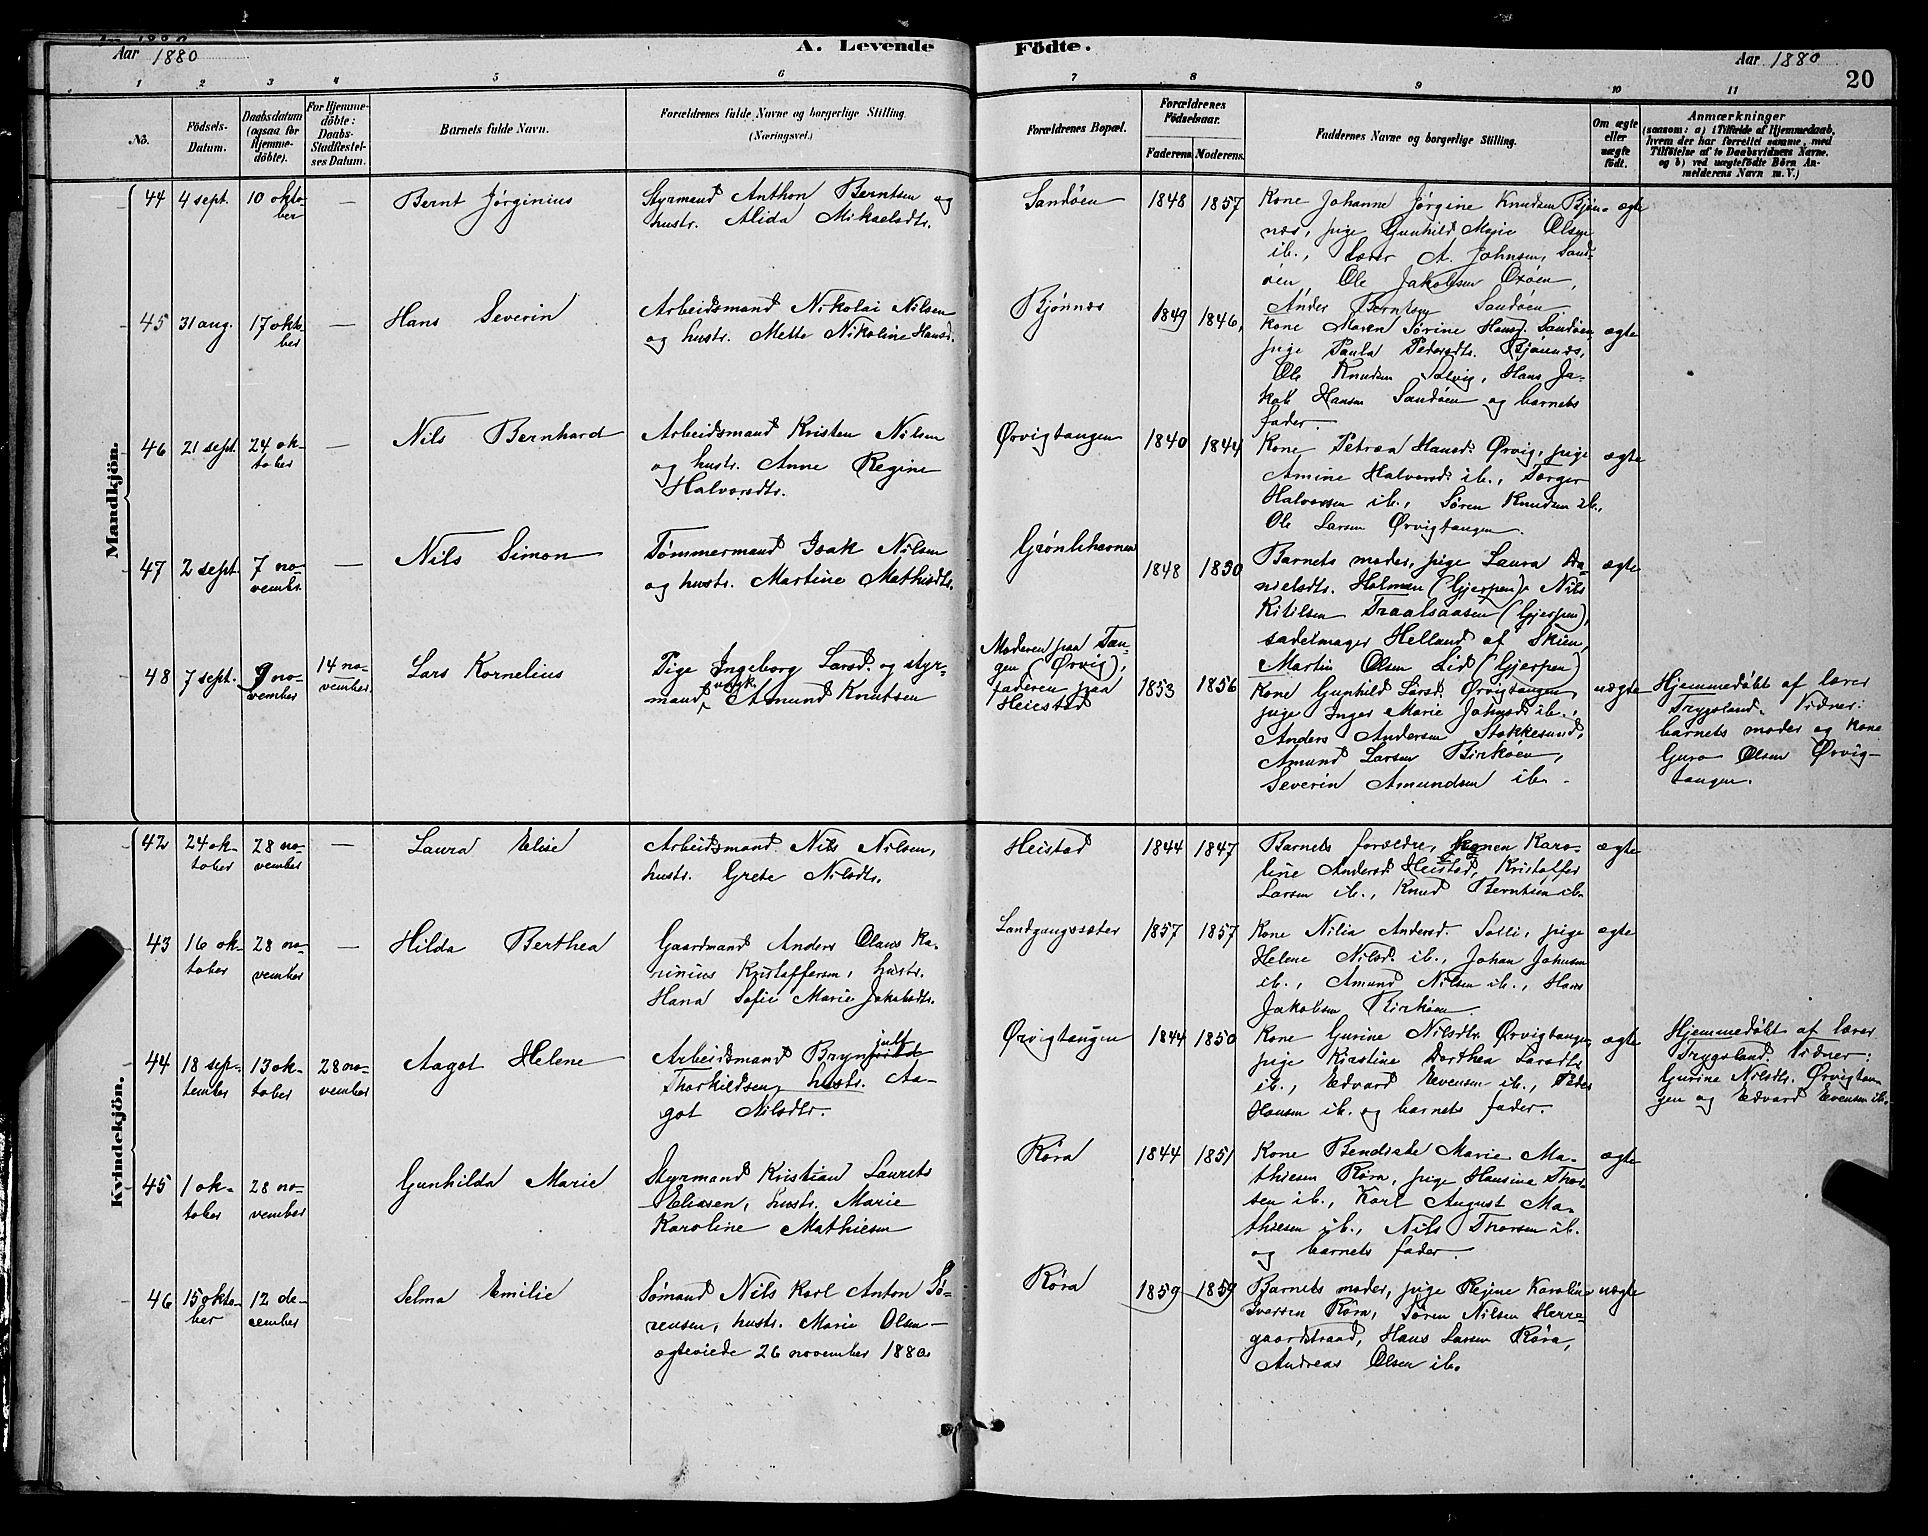 Aar 1880
A. Levende
Födte.
Aar 1880
20
1 2 3 4 5 6 7 8 9 10 11
No.
Födsels-Datum.
Daabsdatum (ogsaa for Hjemmedöbte).
For Hjemmedöbte: Daabs-Stadfæstelses Datum.
Barnets fulde Navn.
Forældrenes fulde Navne og borgerlige Stilling. (Næringsvei.)
Forældrenes Bopæl.
Forældrenes Födselsaar.
Faderens. Moderens.
Faddernes Navne og borgerlige Stilling.
Om ægte eller uægte födt.
Anmærkninger
(saasom: a) i Tilfælde af Hjemmedaab,
hvem der har forrettet samme, med
Tilföielse af to Daabsvidners Navne,
og b) ved uægtefödte Börn Anmelderens Navn m. V.)
Mandkjön.
44 4 sept. 10 oktober — Bernt Jørginius
Styrmand Anthon Berntsen og
hustr. Alida Mikaelsdtr.
Sandøen 1848 1857
Kone Johanne Jørgine Knudsen Bjøn-
næs, pige Gunhild Marie Olsen
ib., Lærer A. Johnsen, Sand-
øen Ole Jakobsen Oxøen,
Anders Berntsen Sandøen
ægte
45 31 aug. 17 oktober — Hans Severin
Arbeidsmand Nikolai Nilsen
og hustr. Mette Nikoline Hansd.
Bjønnæs 1849 1846
Kone Maren Sørine Hansd. Sandøen,
pige Paula Pedersdtr. Bjønnæs,
Ole Knudsen Solvig, Hans Ja-
kob Hansen Sandøen og barnets
fader.
ægte
46 21 sept. 24 oktober — Nils Bernhard
Arbeidsmand Kristen Nilsen
og hustr. Anne Regine
Halvorsdtr.
Ørvigtangen 1840 1844
Kone Petræa Hansd. Ørvig, pige
Amine Halvorsd. ib., Torger
Halvorsen ib., Søren Knudsen ib.,
Ole Larsen Ørvigtangen.
ægte
47 2 sept. 7 november — Nils Simon
Tømmermand Isak Nilsen
og hustr. Martine Mathisdtr.
Grønlihavnen 1848 1850
Barnets moder, pige Laura Da-
nielsdtr. Holmen (Gjerpen), Nils
Kitilsen Traalsaasen (Gjerpen),
sadelmager Helland af Skien,
Martin Olsen Lid (Gjerpen)
ægte
48 7 sept. 9 november 14 november Lars Kornelius
Pige Ingeborg Larsd. og styr-
mand ungk. Amund Knutsen
Moderen paa Tan-
gen (Ørvig),
faderen paa
Heiestad
1853 1856
Kone Gunhild Larsd. Ørvigtangen,
pige Inger Marie Johnsd. ib.,
Anders Andersen Stokkesund,
Amund Larsen Birkøen,
Severin Amundsen ib.
uægte
Hjemmedøbt af lærer
Trygsland. Vidner:
barnets moder og kone
Guro Olsen Ørvig-
tangen.
Kvindekjön.
42 24 oktober 28 november — Laura Elise
Arbeidsmand Nils Nilsen,
hustr. Grete Nilsdtr.
Heistad 1844 1847
Barnets forældre, konen Karo-
line Andersd. Heistad, Kristoffer
Larsen ib., Knud Berntsen ib.
ægte
43 16 oktober 28 november — Hilda Berthea
Gaardmand Anders Olaus Ka-
ninius Kristoffersen, hustr.
Hana Sofie Marie Jakobsdtr.
Landgangssæter 1857 1857
Kone Nilia Andersd. Solli, pige
Helene Nilsd. ib., Johan Johnsen
ib., Amund Nilsen ib., Hans
Jakobsen Birkøen.
ægte
44 18 september 13 oktober 28 november Aagot Helene
Arbeidsmand Brynjulf
Thorkildsen, hustr. Aa-
got Nilsdtr.
Ørvigtangen 1844 1850
Kone Gurine Nilsdtr. Ørvigtangen
pige Kirstine Dorthea Larsdtr.
ib., Edvard Evensen ib., Peder
Hansen ib. og barnets fader.
ægte
Hjemmedøbt af lærer
Trygsland. Vidner:
Gurine Nilsdtr. Ørvigtan-
gen og Edvard Evensen ib.
45 1 oktober 28 november Gunhilda Marie
Styrmand Kristian Laurets
Eliasen, hustr. Marie
Karoline Mathiesen
Røra 1844 1851
Kone Bendicte Marie Ma-
thiesen Røra, pige Hansine Thor-
sen ib., Karl August Ma-
thiesen ib., Nils Thorsen ib.
og barnets fader.
ægte
46 15 oktober 12 december Selma Emilie
Sømand Nils Karl Anton Sø-
rensen, hustr. Marie Olsen —
ægteviede 26 november 1880.
Røra 1859 1859
Barnets moder, pige Regine Karoline
Iversen Røra, Søren Nilsen Herre-
gaardstraad, Hans Larsen Røra,
Andreas Olsen ib.
uægte